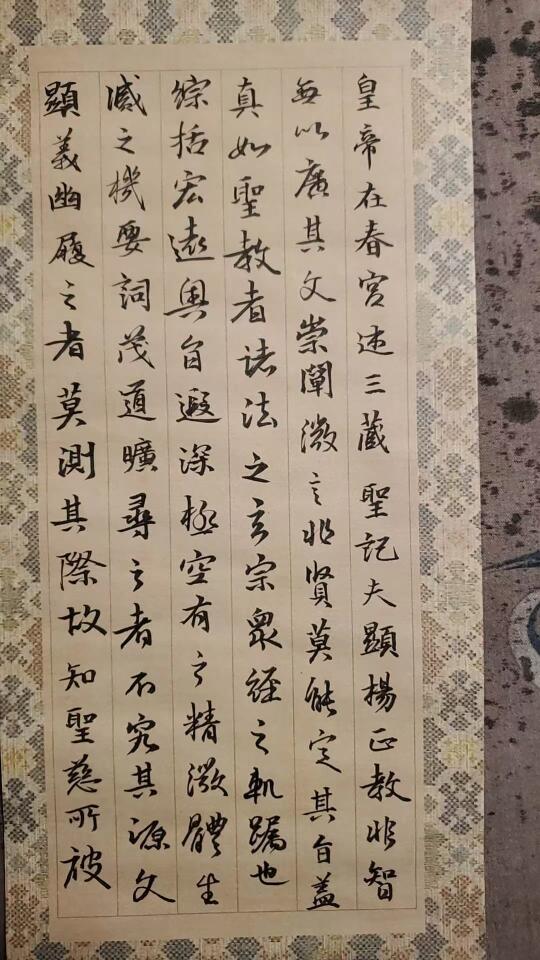 皇帝在春宮述三藏聖記夫顯揚正教非智
無以廣其文崇闡微言非賢莫能定其旨蓋
真如聖教者諸法之玄宗眾經之軌躅也
綜括宏遠奧旨遐深極空有之精微體生
滅之機要詞茂道曠尋之者不究其源文
顯義幽履之者莫測其際故知聖慈所被